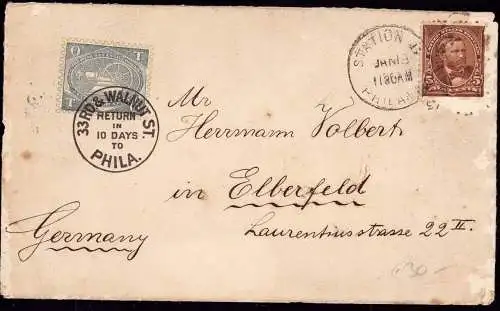 33RD & WALNUT ST.
RETURN
IN
10 DAYS
TO
PHILA.
STATION
JAN 18
11 30 AM
PHILA
Mr
Herrmann Volbert
in Elberfeld
Laurentiusstrasse 22 II.
Germany